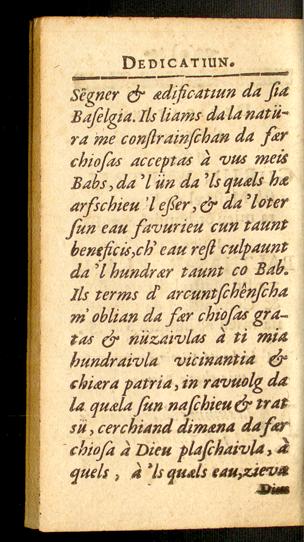 DEDICATIUN.
Sėgner & ædificatiun da ſia
Baſelgia. Ils liams da la natü-
ra me conſtrainſchan da fær
chioſas acceptas à vus meis
Babs, da 'l ün da 'ls quæls hæ
arfschieu 'l eſſer, & da 'l oter
ſun eau favurieu cun taunt
beneficis, ch' eau reſt culpaunt
da 'l hundrær taunt co Bab.
Ils terms d' arcuntſchênſcha
m' oblian da fær chioſas gra-
tas & nüzaivlas à ti mia
hundraivla vicinantia &
chiæra patria, in ravuolg da
la quæla ſun naſchieu & trat
sü, cerchiand dimæna da fær
chioſa à Dieu plaſchaivla, à
quels, à 'ls quæls eau, zieva
Dieu